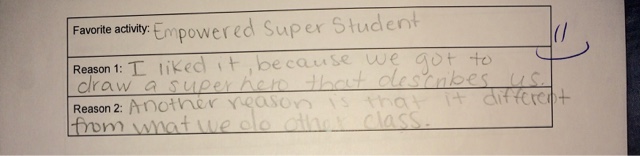 Favorite activity: Empowered Super Student
Reason 1: I liked it, because we got to
draw a superhero that describes us.
Reason 2: Another reason is that it different
from what we do other class.